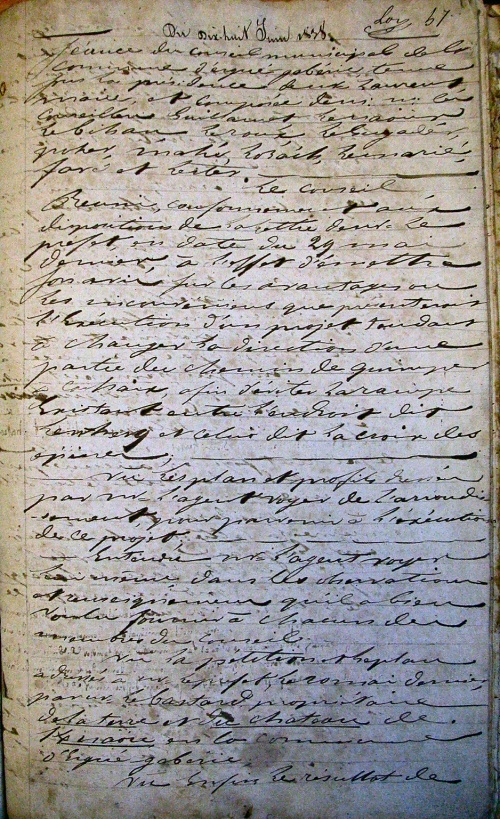 67
Du dix-huit Juin 1838.
Séance du conseil municipal de la
commune d'ergué gabéric, tenue
sous la présidence de Mr Laurent
et composée de m.m. les
conseillers Guillamet
le bihan le roux
mahé
et
Le conseil
Réuni conformément aux
dispositions de la lettre de mr le
préfet en date du 29 mai
dernier, à l'effet d'émettre
son avis sur les avantages ou
les inconveniens que présenterait
l'Exécution d'un projet tendant
à changer la direction d'une
partie du chemin de quimper
à Carhaix afin d'éviter la rampe
Existant entre l'endroit dit
et celui dit la croix des
Vu les plan et profils dressés
par mr l'agent voyer de l'arrondis-
sement pour parvenir à l'exécution
de ce projet
Entendu mr l'agent voyer
lui même dans les observations
et renseignemens qu'il a bien
voulu fournir à chacun des
membres du Conseil.
Vu la petition et le plan
adressés à mr le préfet le 20 mai dernier,
par mr le bastard propriétaire
de la terre et du chateau de
en la commune
d'Ergué gabéric.
Vu enfin le résultat de